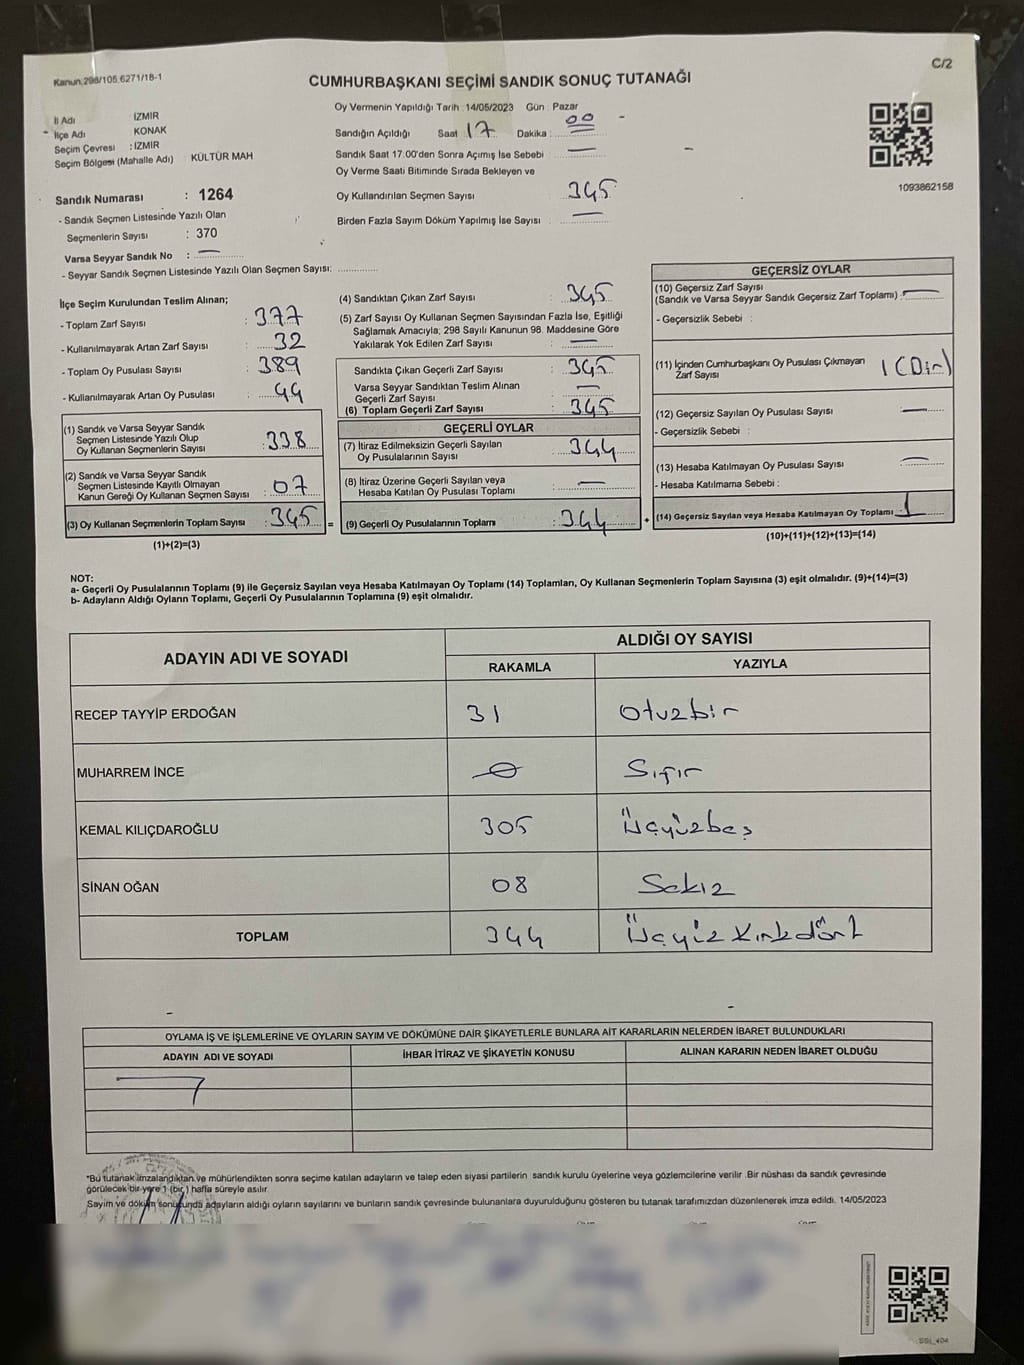 Kanun:298/105,6271/18-1
C/2
CUMHURBAŞKANI SEÇİMİ SANDIK SONUÇ TUTANAĞI
İl Adı : İZMİR
İlçe Adı : KONAK
Seçim Çevresi : İZMİR
Seçim Bölgesi (Mahalle Adı) : KÜLTÜR MAH
Oy Vermenin Yapıldığı Tarih :14/05/2023 Gün : Pazar
Sandığın Açıldığı Saat 17 Dakika : 00
Sandık Saat 17.00'den Sonra Açımış İse Sebebi : —
Oy Verme Saati Bitiminde Sırada Bekleyen ve
Oy Kullandırılan Seçmen Sayısı : 345
Birden Fazla Sayım Döküm Yapılmış İse Sayısı : —
1093862158
Sandık Numarası : 1264
- Sandık Seçmen Listesinde Yazılı Olan
Seçmenlerin Sayısı : 370
Varsa Seyyar Sandık No : —
- Seyyar Sandık Seçmen Listesinde Yazılı Olan Seçmen Sayısı: ..............
İlçe Seçim Kurulundan Teslim Alınan;
- Toplam Zarf Sayısı : 377
- Kullanılmayarak Artan Zarf Sayısı : 32
- Toplam Oy Pusulası Sayısı : 389
- Kullanılmayarak Artan Oy Pusulası : 44
(1) Sandık ve Varsa Seyyar Sandık
Seçmen Listesinde Yazılı Olup
Oy Kullanan Seçmenlerin Sayısı : 338
(2) Sandık ve Varsa Seyyar Sandık
Seçmen Listesinde Kayıtlı Olmayan
Kanun Gereği Oy Kullanan Seçmen Sayısı : 07
(3) Oy Kullanan Seçmenlerin Toplam Sayısı : 345
(1)+(2)=(3)
(4) Sandıktan Çıkan Zarf Sayısı : 345
(5) Zarf Sayısı Oy Kullanan Seçmen Sayısından Fazla İse, Eşitliği
Sağlamak Amacıyla; 298 Sayılı Kanunun 98. Maddesine Göre
Yakılarak Yok Edilen Zarf Sayısı : —
Sandıkta Çıkan Geçerli Zarf Sayısı : 345
Varsa Seyyar Sandıktan Teslim Alınan
Geçerli Zarf Sayısı : —
(6) Toplam Geçerli Zarf Sayısı : 345
GEÇERLİ OYLAR
(7) İtiraz Edilmeksizin Geçerli Sayılan
Oy Pusulalarının Sayısı : 344
(8) İtiraz Üzerine Geçerli Sayılan veya
Hesaba Katılan Oy Pusulası Toplamı : —
= (9) Geçerli Oy Pusulalarının Toplamı : 344
GEÇERSİZ OYLAR
(10) Geçersiz Zarf Sayısı
(Sandık ve Varsa Seyyar Sandık Geçersiz Zarf Toplamı) : —
- Geçersizlik Sebebi :
(11) İçinden Cumhurbaşkanı Oy Pusulası Çıkmayan
Zarf Sayısı : 1 (Bir)
(12) Geçersiz Sayılan Oy Pusulası Sayısı : —
- Geçersizlik Sebebi :
(13) Hesaba Katılmayan Oy Pusulası Sayısı : —
- Hesaba Katılmama Sebebi :
+ (14) Geçersiz Sayılan veya Hesaba Katılmayan Oy Toplamı : 1
(10)+(11)+(12)+(13)=(14)
NOT:
a- Geçerli Oy Pusulalarının Toplamı (9) ile Geçersiz Sayılan veya Hesaba Katılmayan Oy Toplamı (14) Toplamları, Oy Kullanan Seçmenlerin Toplam Sayısına (3) eşit olmalıdır. (9)+(14)=(3)
b- Adayların Aldığı Oyların Toplamı, Geçerli Oy Pusulalarının Toplamına (9) eşit olmalıdır.
ADAYIN ADI VE SOYADI
ALDIĞI OY SAYISI
RAKAMLA YAZIYLA
RECEP TAYYİP ERDOĞAN 31 Otuzbir
MUHARREM İNCE 0 Sıfır
KEMAL KILIÇDAROĞLU 305 Üçyüzbeş
SİNAN OĞAN 08 Sekiz
TOPLAM 344 Üçyüz Kırkdört
OYLAMA İŞ VE İŞLEMLERİNE VE OYLARIN SAYIM VE DÖKÜMÜNE DAİR ŞİKAYETLERLE BUNLARA AİT KARARLARIN NELERDEN İBARET BULUNDUKLARI
ADAYIN ADI VE SOYADI İHBAR İTİRAZ VE ŞİKAYETİN KONUSU ALINAN KARARIN NEDEN İBARET OLDUĞU
*Bu tutanak imzalandıktan ve mühürlendikten sonra seçime katılan adayların ve talep eden siyasi partilerin sandık kurulu üyelerine veya gözlemcilerine verilir .Bir nüshası da sandık çevresinde
görülecek bir yere 1 (bir ) hafta süreyle asılır.
Sayım ve döküm sonucunda adayların aldığı oyların sayılarını ve bunların sandık çevresinde bulunanlara duyurulduğunu gösteren bu tutanak tarafımızdan düzenlenerek imza edildi. 14/05/2023